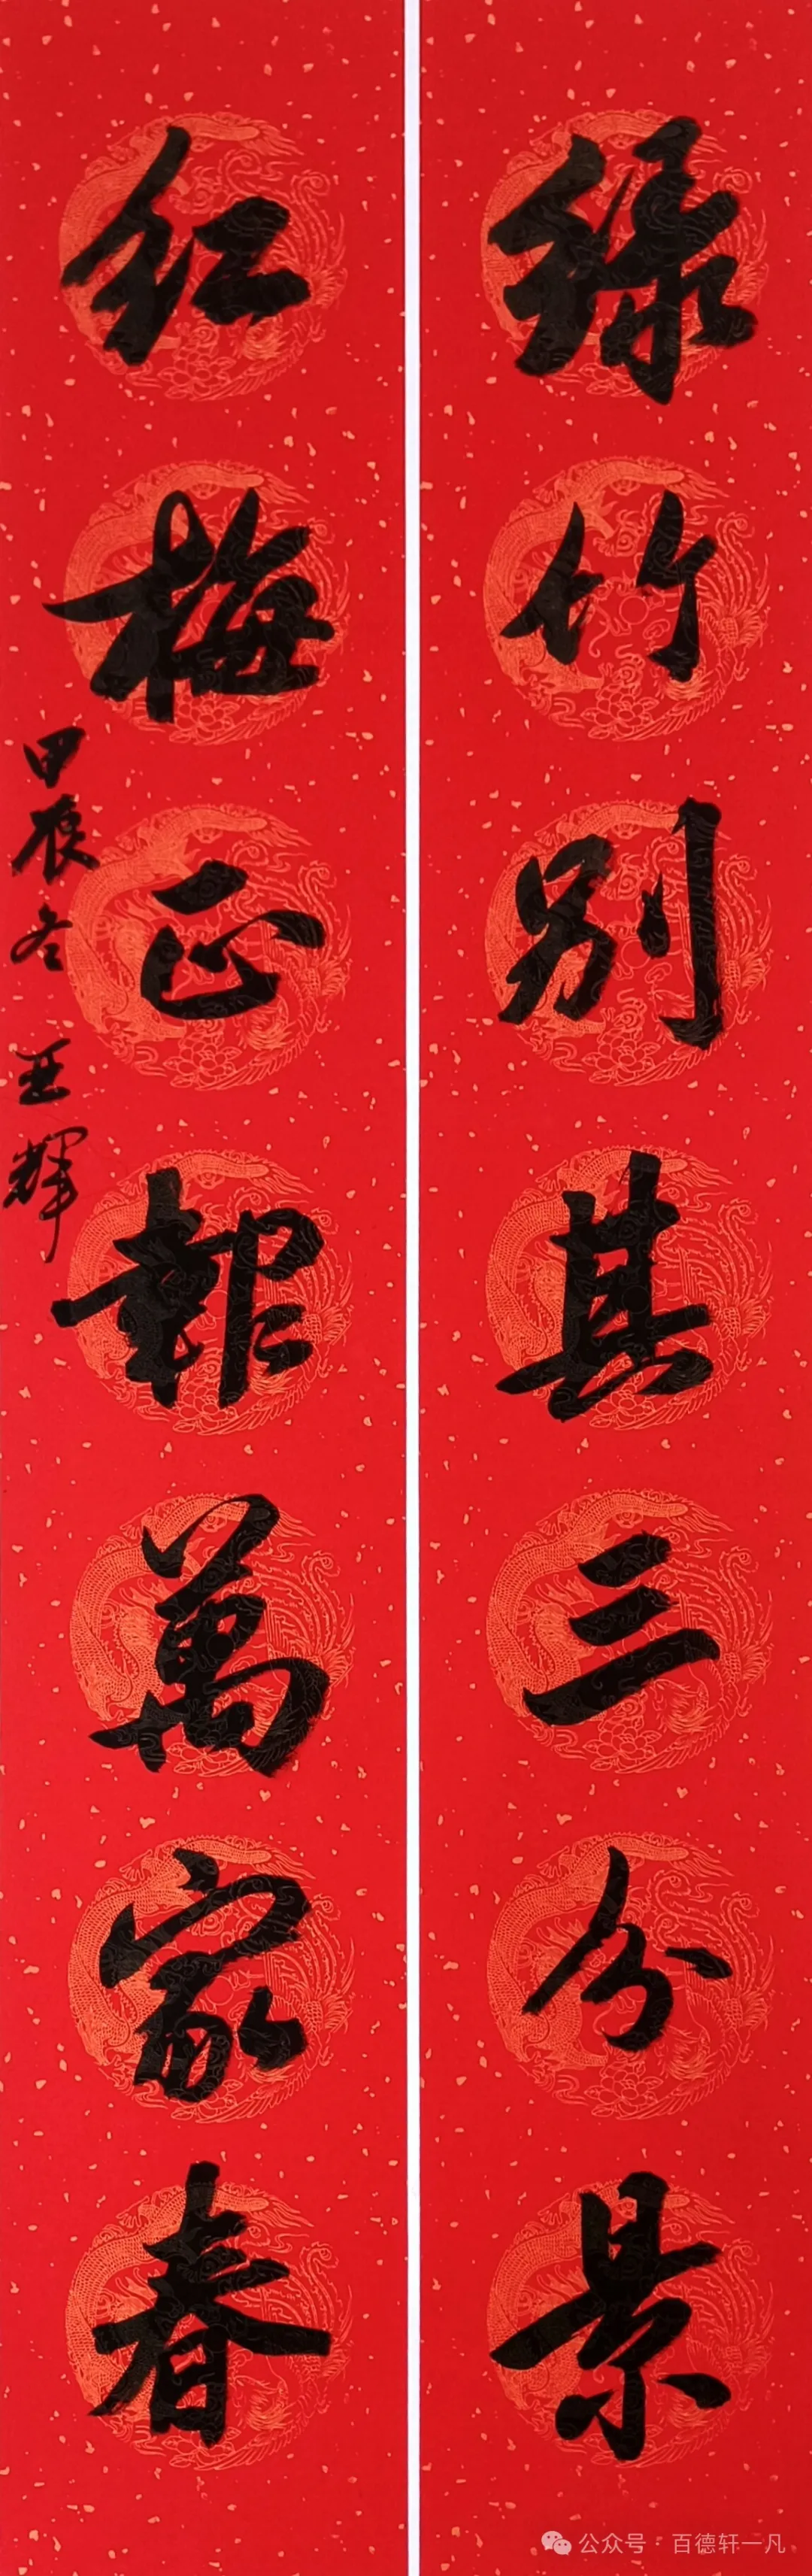 绿竹别其三分景
红梅正報萬家春
甲辰冬 亚辉
公众号 · 百德轩一凡